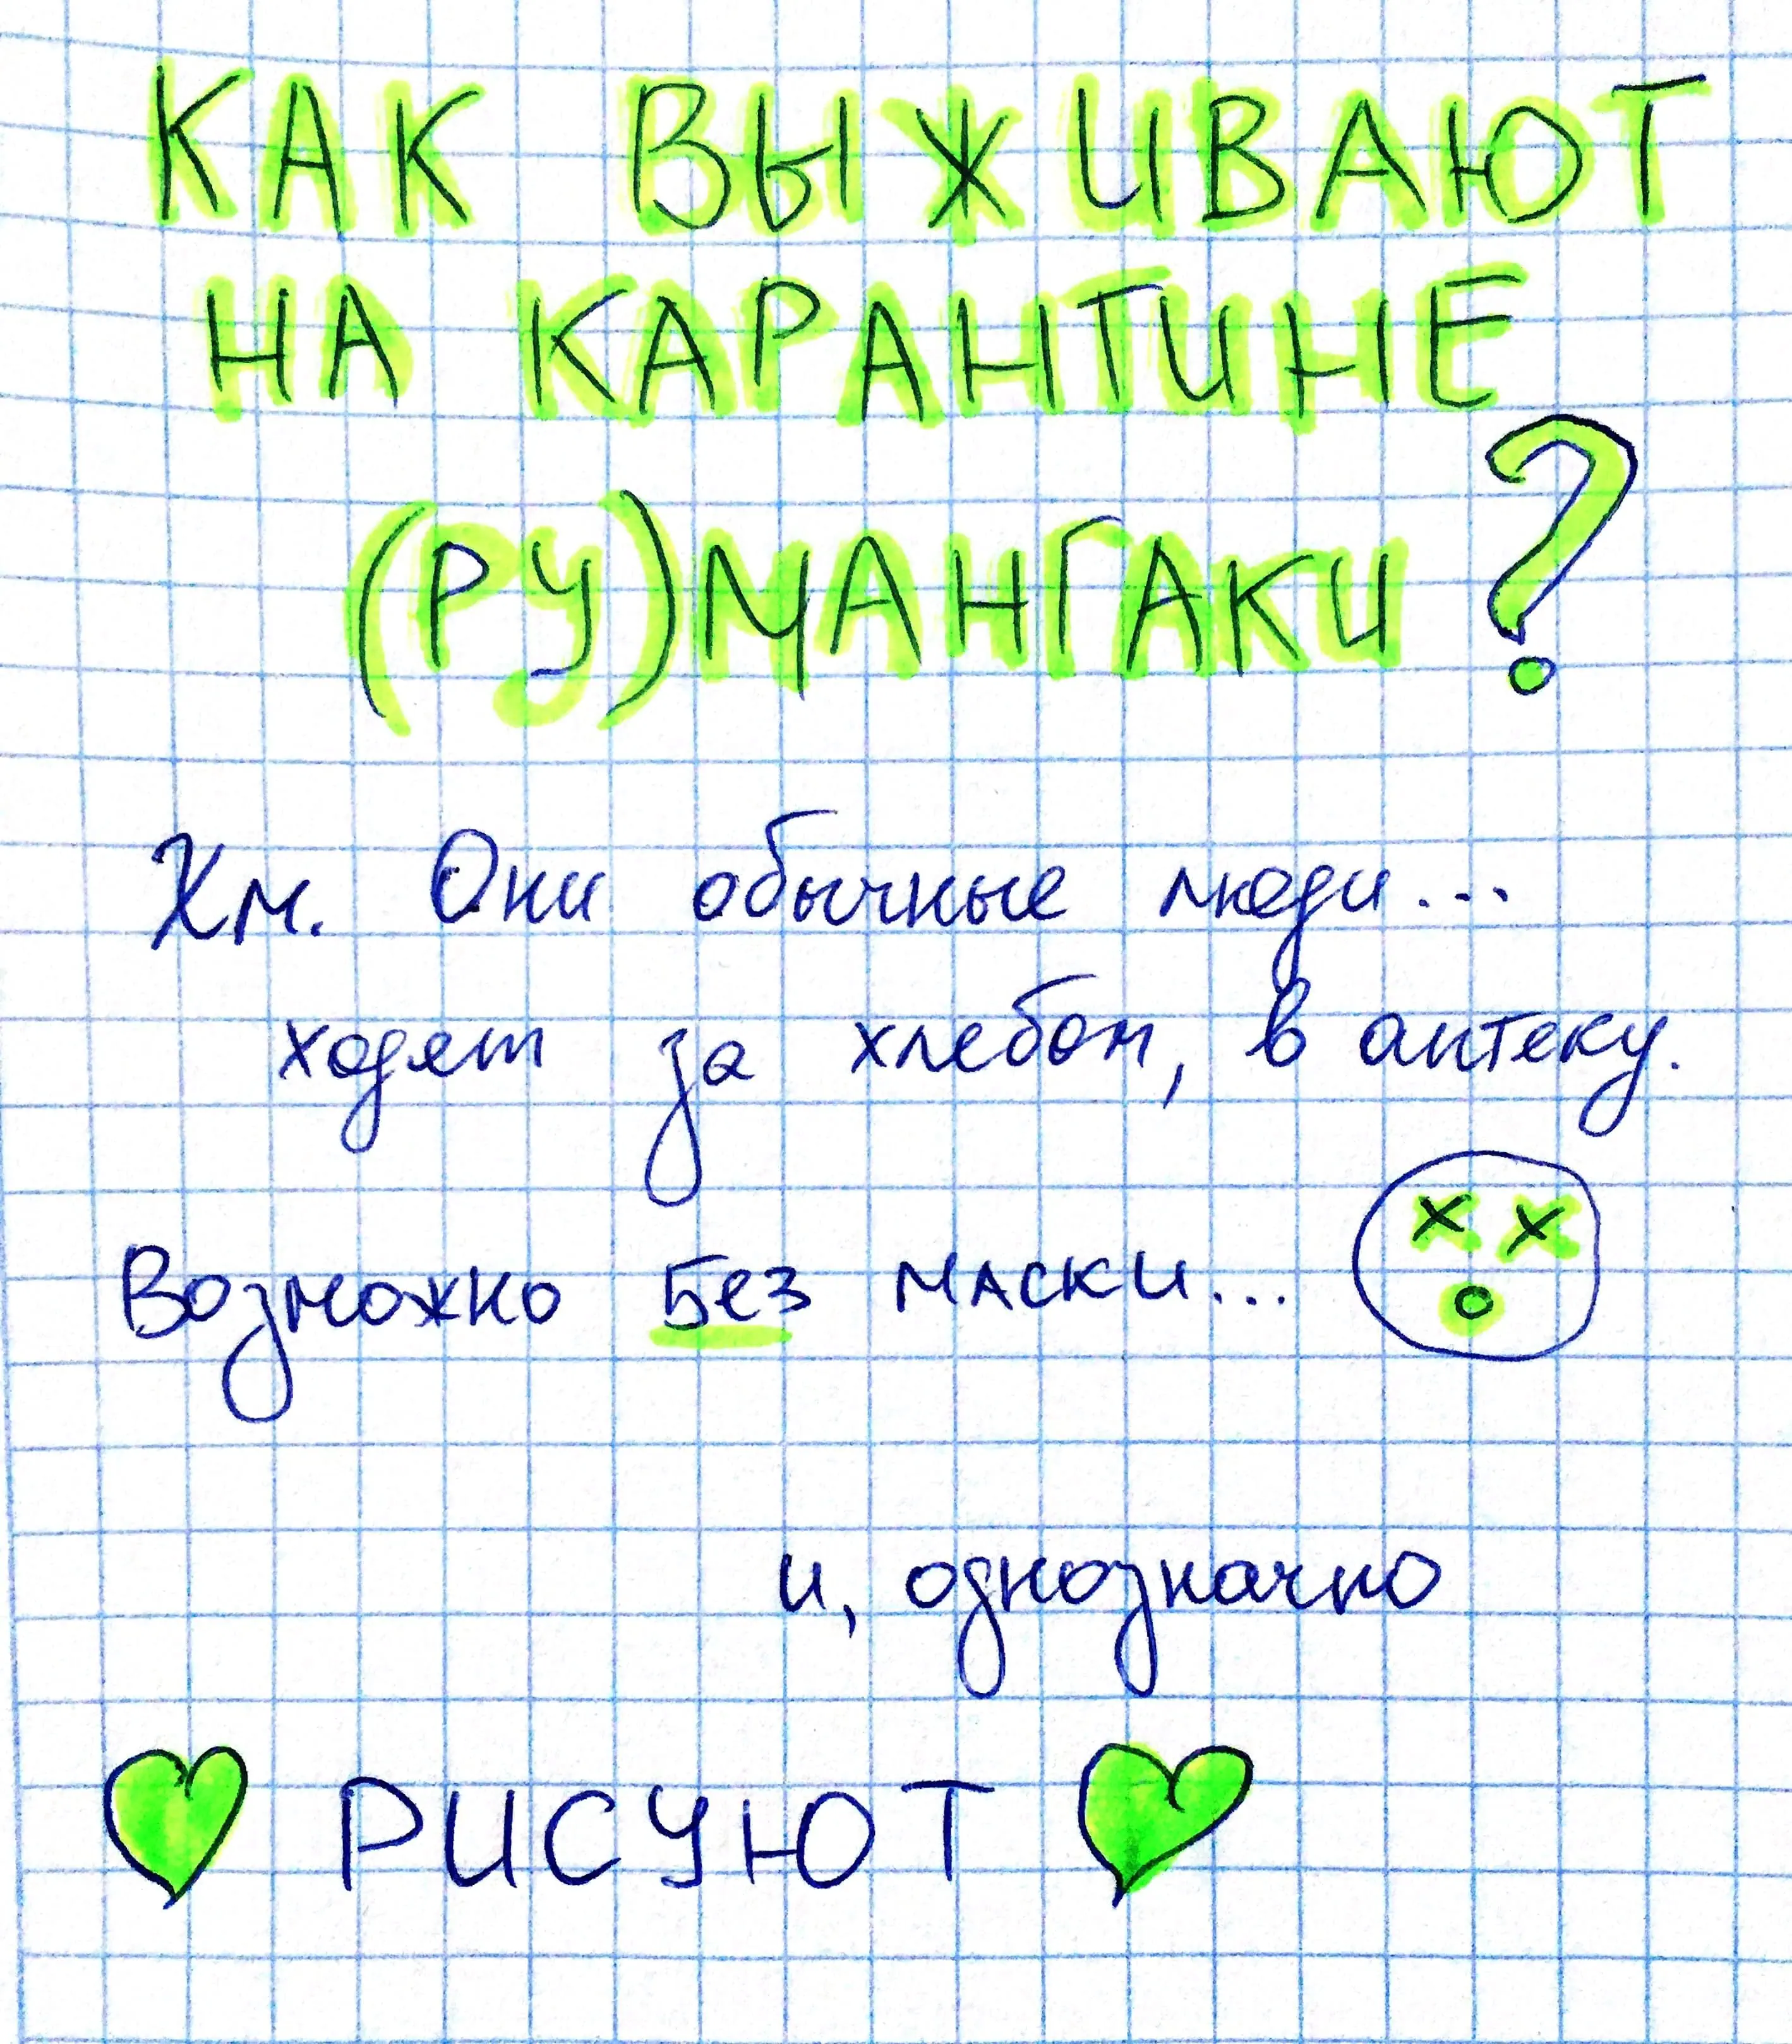 КАК ВЫЖИВАЮТ
НА КАРАНТИНЕ
(РУ)МАНГАКИ?
Хм. Они обычные люди...
ходят за хлебом, в аптеку.
Возможно без маски...
и, однозначно
РИСУЮТ